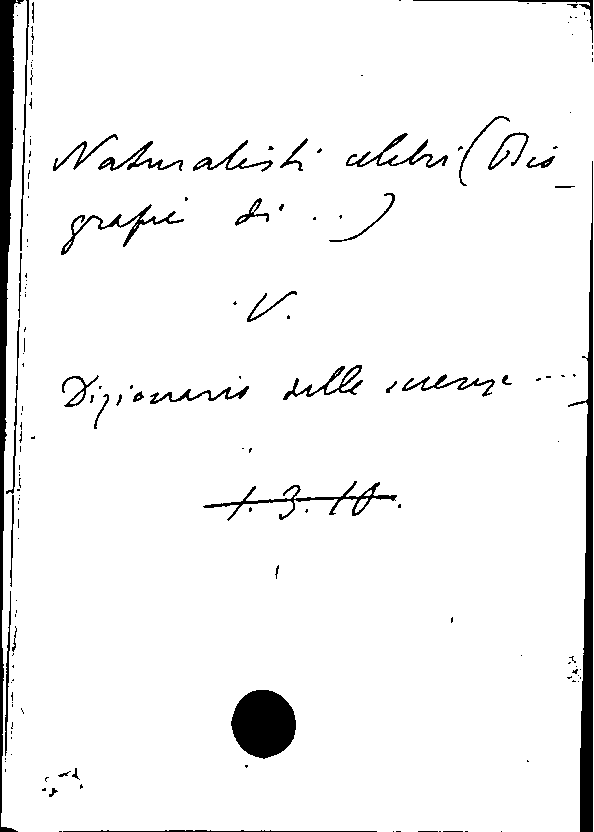 Naturalisti celebri (Bio_
grafie di ...)
V.
Dizionario delle scienze ....
1.3.10.